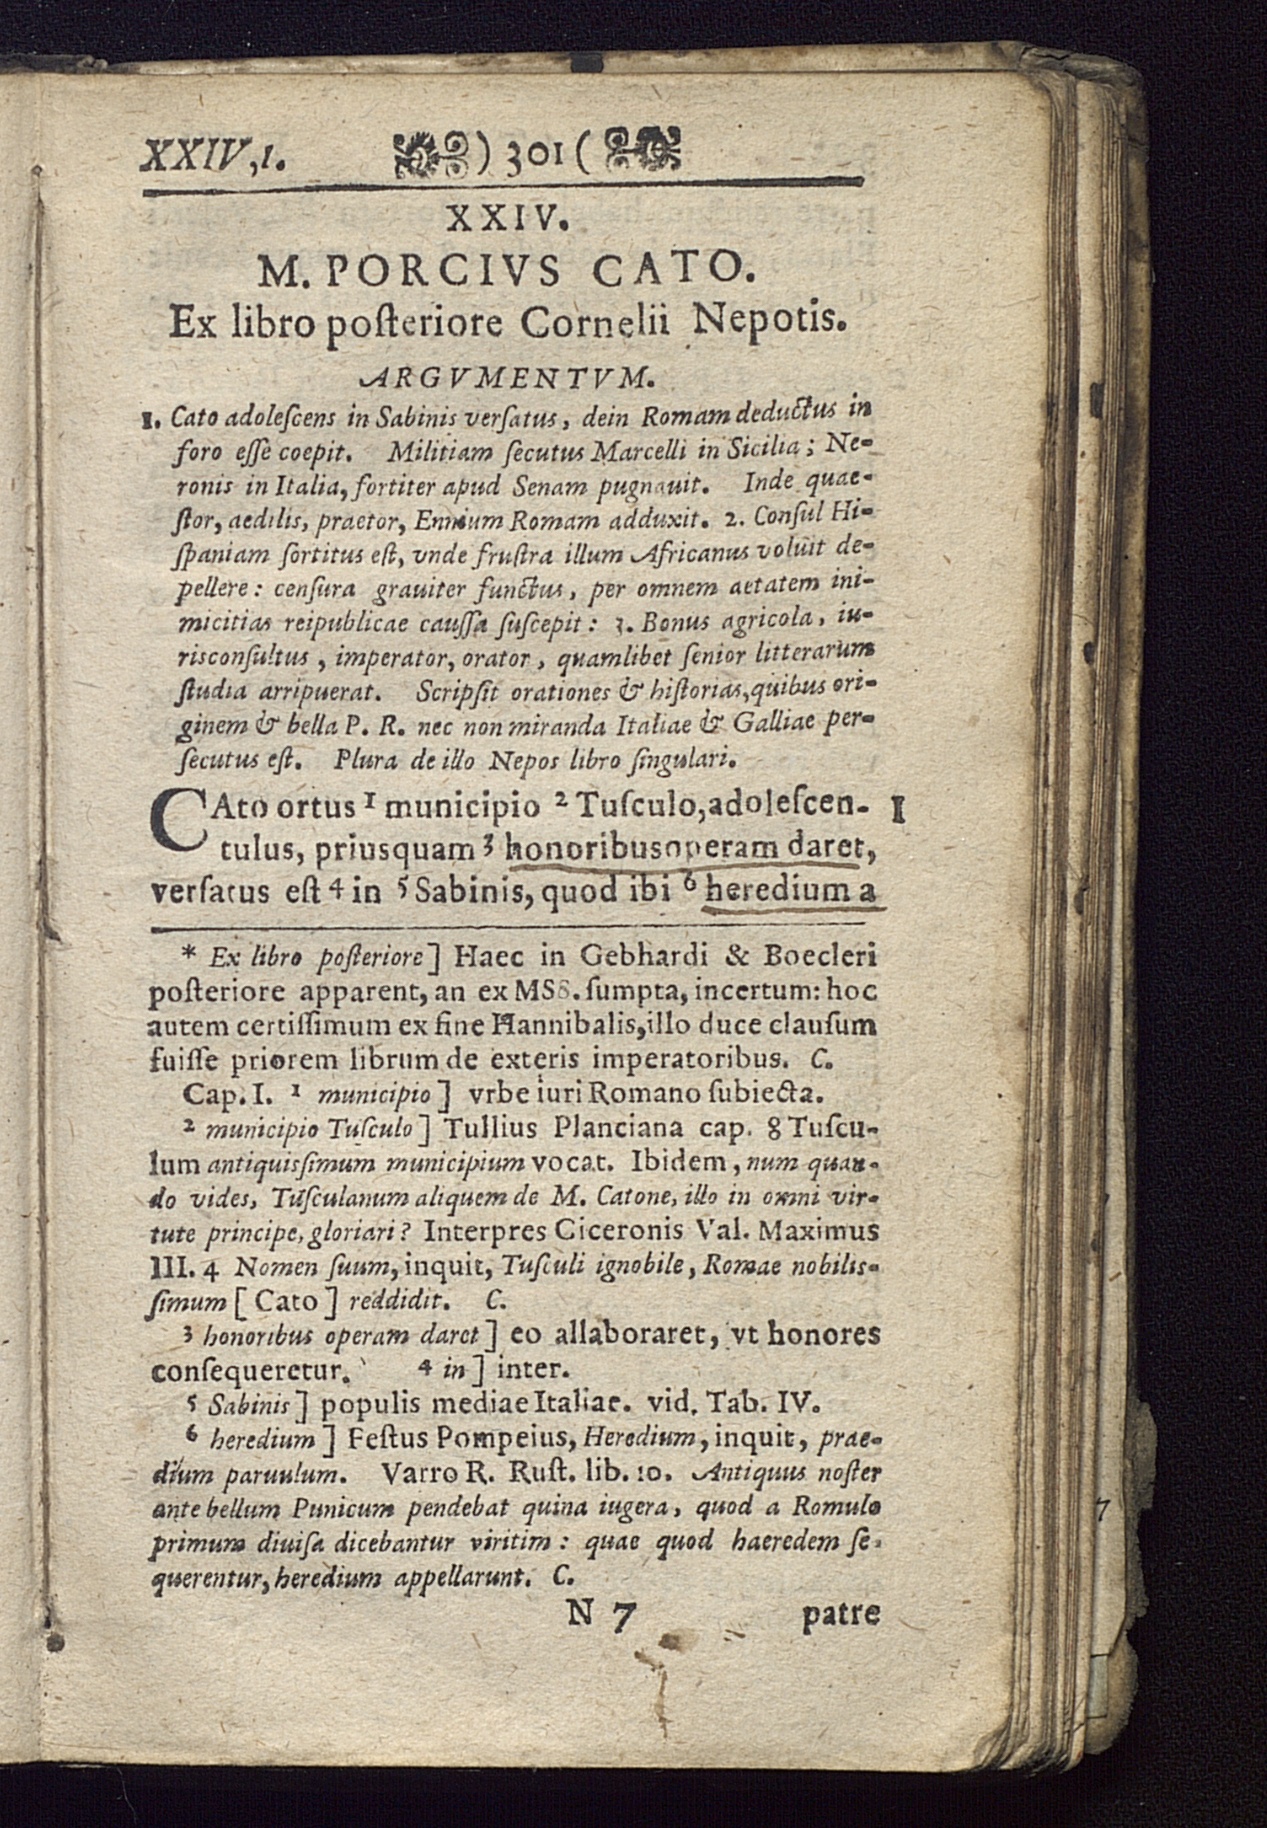 XXIV,1. ) 301 (
XXIV.
M. PORCIVS CATO.
Ex libro poſteriore Cornelii Nepotis.
ARGVMENTVM.
1. Cato adoleſcens in Sabinis verſatus, dein Romam deductus in
foro eſſe coepit. Militiam ſecutus Marcelli in Sicilia; Ne-
ronis in Italia, fortiter apud Senam pugnauit. Inde quae-
ſtor, aedilis, praetor, Ennium Romam adduxit. 2. Conſul Hi-
ſpaniam ſortitus eſt, vnde fruſtra illum Africanus voluit de-
pellere: cenſura grauiter functus, per omnem aetatem ini-
micitias reipublicae cauſſa ſuſcepit: 3. Bonus agricola, iu-
risconſultus, imperator, orator, quamlibet ſenior litterarum
ſtudia arripuerat. Scripſit orationes & hiſtorias, quibus ori-
ginem & bella P. R. nec non miranda Italiae & Galliae per-
ſecutus eſt. Plura de illo Nepos libro ſingulari.
CAto ortus 1 municipio 2 Tuſculo, adoleſcen- I
tulus, priusquam 3 honoribus operam daret,
verſatus eſt 4 in 5 Sabinis, quod ibi 6 heredium a
* Ex libro poſteriore] Haec in Gebhardi & Boecleri
poſteriore apparent, an ex MSS. ſumpta, incertum: hoc
autem certiſſimum ex fine Hannibalis, illo duce clauſum
fuiſſe priorem librum de exteris imperatoribus. C.
Cap. I. 1 municipio] vrbe iuri Romano ſubiecta.
2 municipio Tuſculo] Tullius Planciana cap. 8 Tuſcu-
lum antiquisſimum municipium vocat. Ibidem, num quan-
do vides, Tuſculanum aliquem de M. Catone, illo in omni vir-
tute principe, gloriari? Interpres Ciceronis Val. Maximus
III. 4 Nomen ſuum, inquit, Tuſculi ignobile, Romae nobilis-
ſimum [Cato] reddidit. C.
3 honoribus operam daret] eo allaboraret, vt honores
conſequeretur. 4 in] inter.
5 Sabinis] populis mediae Italiae. vid. Tab. IV.
6 heredium] Feſtus Pompeius, Heredium, inquit, prae-
dium paruulum. Varro R. Ruſt. lib. 10. Antiquus noſter
ante bellum Punicum pendebat quina iugera, quod a Romulo
primum diuiſa dicebantur viritim: quae quod haeredem ſe-
querentur, heredium appellarunt. C.
N 7 patre